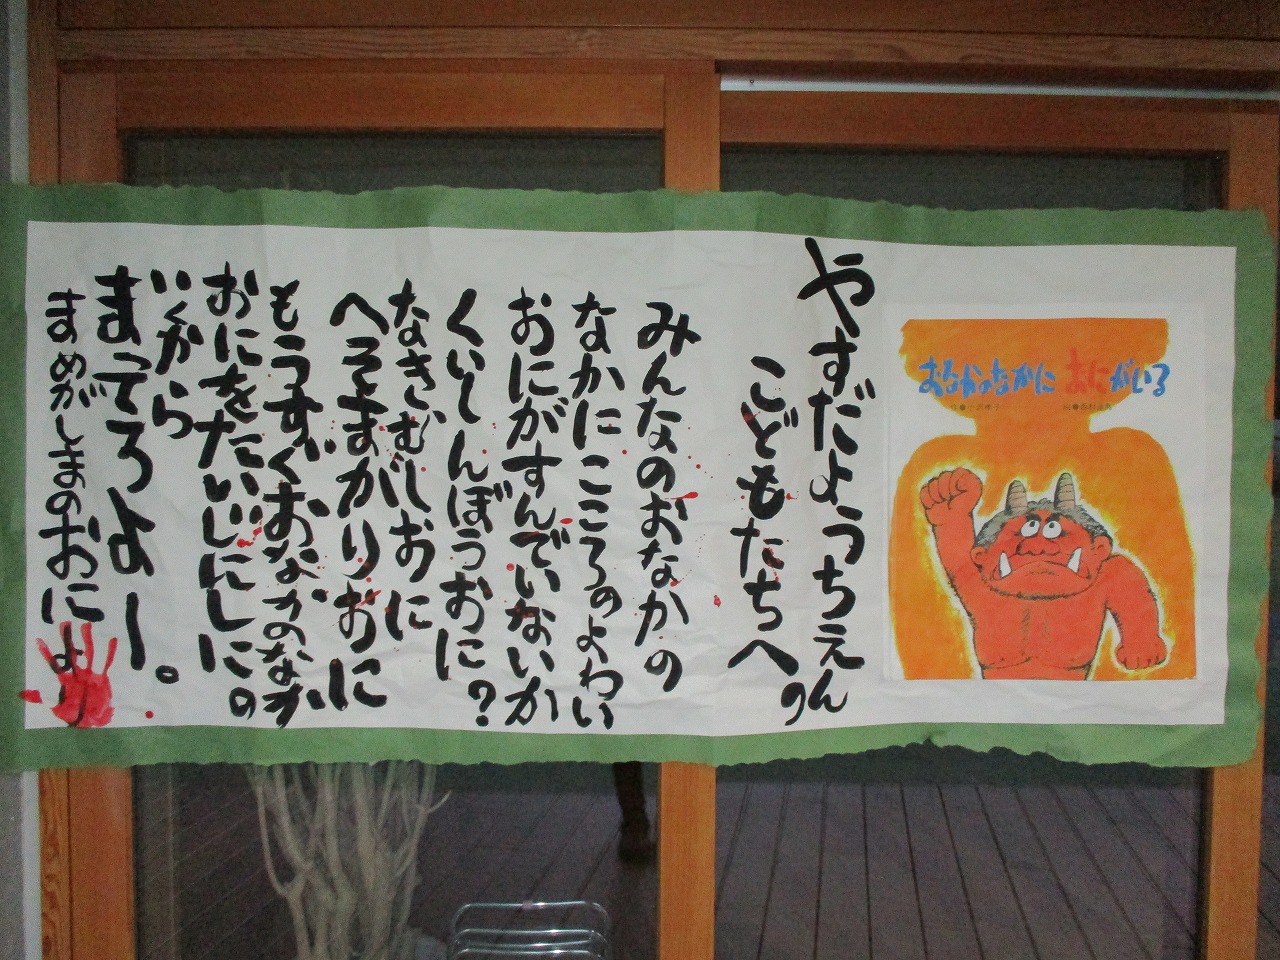 おなかのなかに おにがいる
やすだようちえんの
こどもたちへ
みんなのおなかの
なかにこころのよわい
おにがすんでいないか
くいしんぼうおに?
なきむしおに
へそまがりおに
もうすぐおなかのなかの
おにをたいじにしに
いくから
まってろよー。
まめがしまのおにより